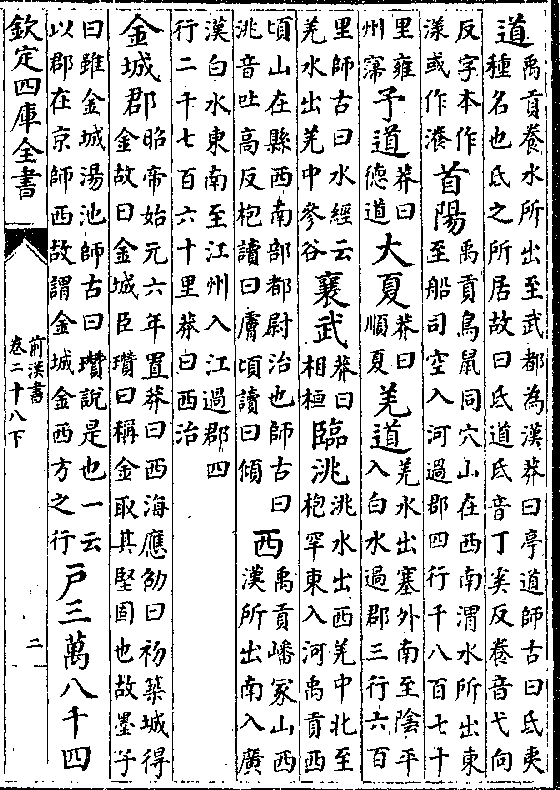 道禹貢養水所出至武都為漢莽曰亭道師古曰氐夷種名也氐之所居故曰氐道氐音丁奚反養音弋向
反字本作漾或作瀁首陽禹貢鳥鼠同穴山在西南渭水所出東至船司空入河過郡四行千八百七十
里雍州寖予道莽曰德道大夏莽曰順夏羌道羌水出塞外南至隂平入白水過郡三行六百
里師古曰水經云羌水出羌中參谷襄武莽曰相桓臨洮洮水出西羌中北至枹罕東入河禹貢西
頃山在縣西南部都尉治也師古曰洮音吐高反枹讀曰膚頃讀曰傾西禹貢嶓冢山西漢所出南入廣
漢白水東南至江州入江過郡四行二千七百六十里莽曰西治
金城郡昭帝始元六年置莽曰西海應劭曰初築城得金故曰金城臣瓚曰稱金取其堅固也故墨子
曰雖金城湯池師古曰瓚說是也一云以郡在京師西故謂金城金西方之行戶三萬八千四
欽定四庫全書
前漢書
卷二十八下
二